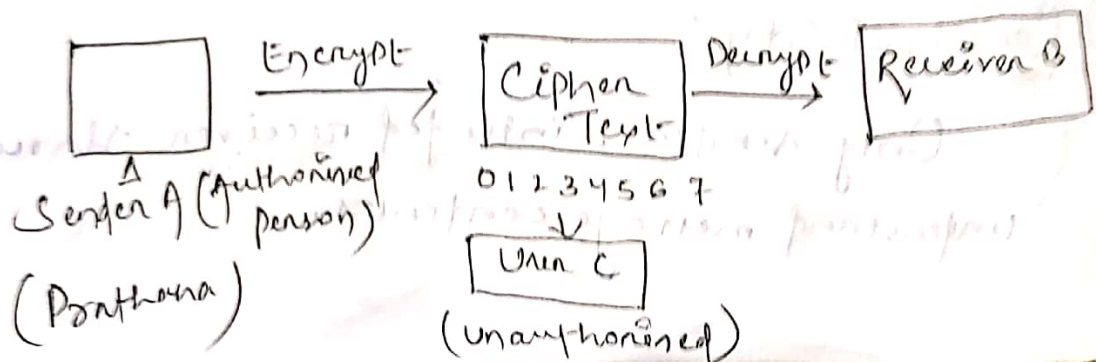 Encrypt
Cipher
Text
Decrypt
Receiver B
Sender A (Authorized
person)
0 1 2 3 4 5 6 7
User C
(Prathana)
(unauthorized)